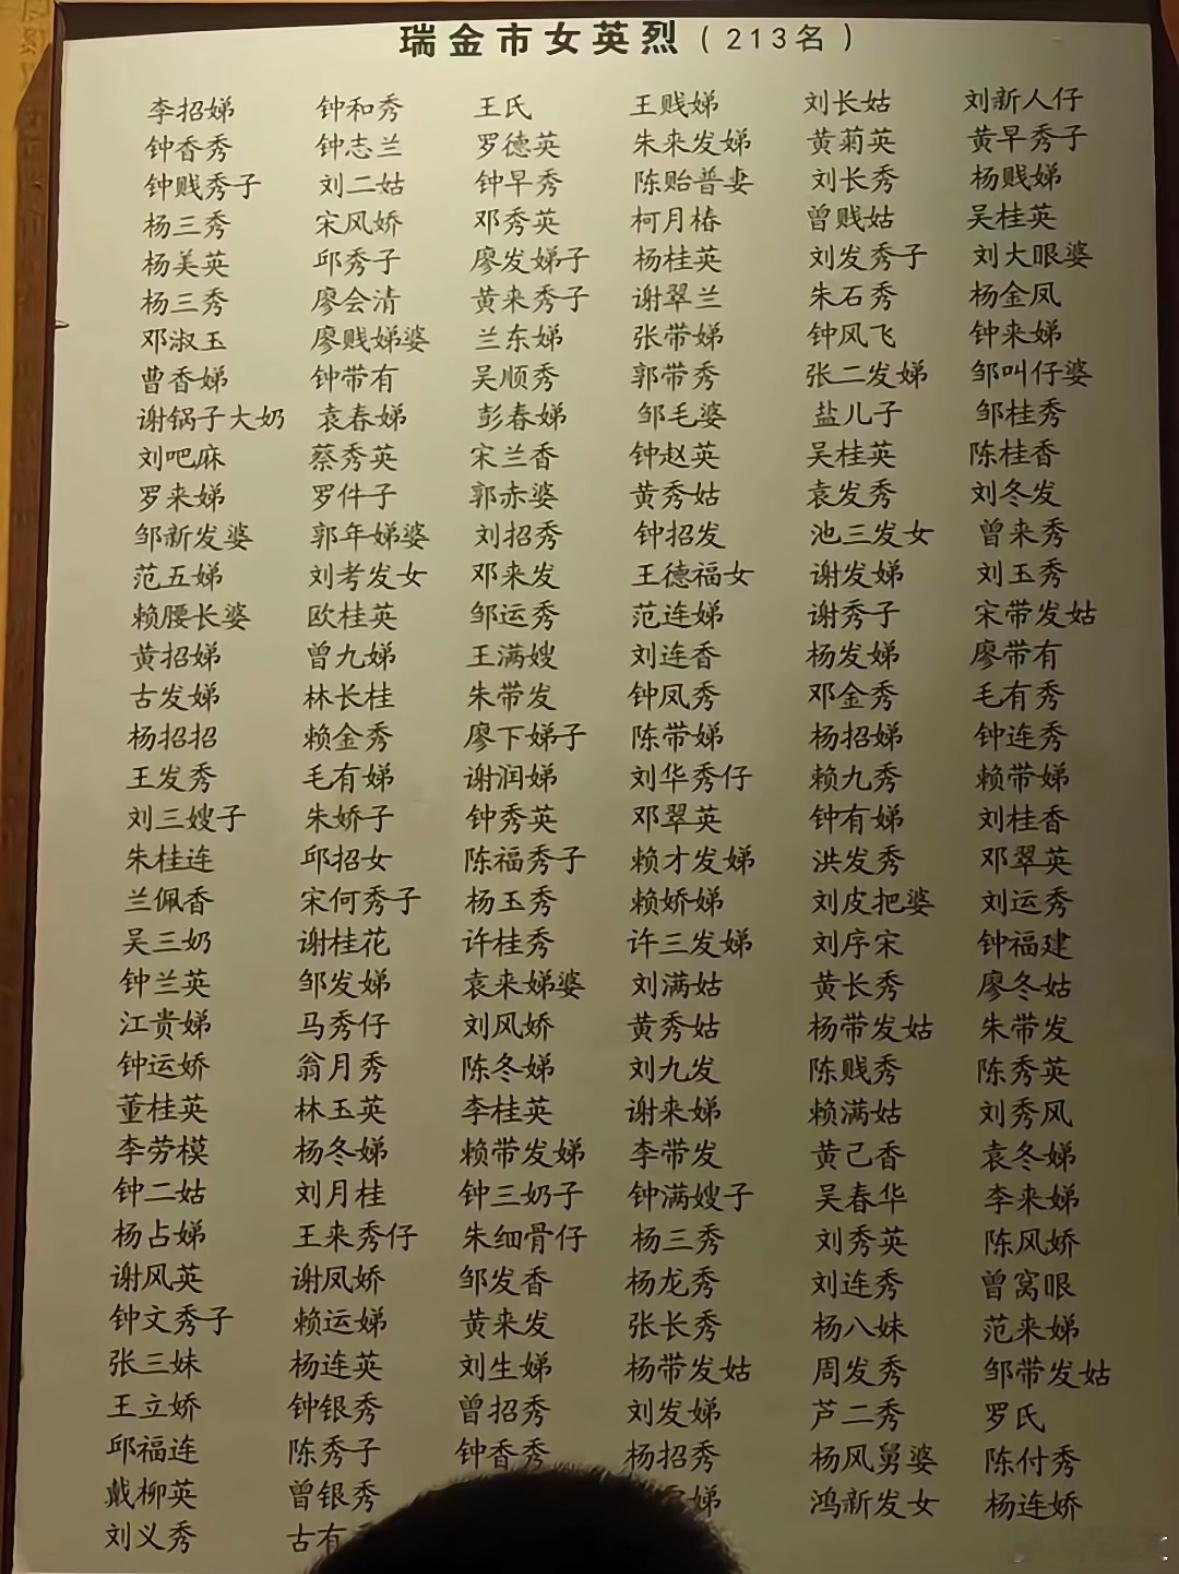 瑞金市女英烈(213名)
李招娣 钟和秀 王氏 王贱娣 刘长姑 刘新人仔
钟香秀 钟志兰 罗德英 朱来发娣 黄菊英 黄早秀子
钟贱秀子 刘二姑 钟早秀 陈贻普妻 刘长秀 杨贱娣
杨三秀 宋风娇 邓秀英 柯月椿 曾贱姑 吴桂英
杨美英 邱秀子 廖发娣子 杨桂英 刘发秀子 刘大眼婆
杨三秀 廖会清 黄来秀子 谢翠兰 朱石秀 杨金凤
邓淑玉 廖贱娣婆 兰东娣 张带娣 钟风飞 钟来娣
曹香娣 钟带有 吴顺秀 郭带秀 张二发娣 邹叫仔婆
谢锅子大奶 袁春娣 彭春娣 邹毛婆 盐儿子 邹桂秀
刘吧麻 蔡秀英 宋兰香 钟赵英 吴桂英 陈桂香
罗来娣 罗件子 郭赤婆 黄秀姑 袁发秀 刘冬发
邹新发婆 郭年娣婆 刘招秀 钟招发 池三发女 曾来秀
范五娣 刘考发女 邓来发 王德福女 谢发娣 刘玉秀
赖腰长婆 欧桂英 邹运秀 范连娣 谢秀子 宋带发姑
黄招娣 曾九娣 王满嫂 刘连香 杨发娣 廖带有
古发娣 林长桂 朱带发 钟凤秀 邓金秀 毛有秀
杨招招 赖金秀 廖下娣子 陈带娣 杨招娣 钟连秀
王发秀 毛有娣 谢润娣 刘华秀仔 赖九秀 赖带娣
刘三嫂子 朱娇子 钟秀英 邓翠英 钟有娣 刘桂香
朱桂连 邱招女 陈福秀子 赖才发娣 洪发秀 邓翠英
兰佩香 宋何秀子 杨玉秀 赖娇娣 刘皮把婆 刘运秀
吴三奶 谢桂花 许桂秀 许三发娣 刘序宋 钟福建
钟兰英 邹发娣 袁来娣婆 刘满姑 黄长秀 廖冬姑
江贵娣 马秀仔 刘风娇 黄秀姑 杨带发姑 朱带发
钟运娇 翁月秀 陈冬娣 刘九发 陈贱秀 陈秀英
董桂英 林玉英 李桂英 谢来娣 赖满姑 刘秀风
李劳模 杨冬娣 赖带发娣 李带发 黄己香 袁冬娣
钟二姑 刘月桂 钟三奶子 钟满嫂子 吴春华 李来娣
杨占娣 王来秀仔 朱细骨仔 杨三秀 刘秀英 陈风娇
谢风英 谢凤娇 邹发香 杨龙秀 刘连秀 曾窝眼
钟文秀子 赖运娣 黄来发 张长秀 杨八妹 范来娣
张三妹 杨连英 刘生娣 杨带发姑 周发秀 邹带发姑
王立娇 钟银秀 曾招秀 刘发娣 芦二秀 罗氏
邱福连 陈秀子 钟香秀 杨招秀 杨风舅婆 陈付秀
戴柳英 曾银秀 娣 鸿新发女 杨连娇
刘义秀 古有